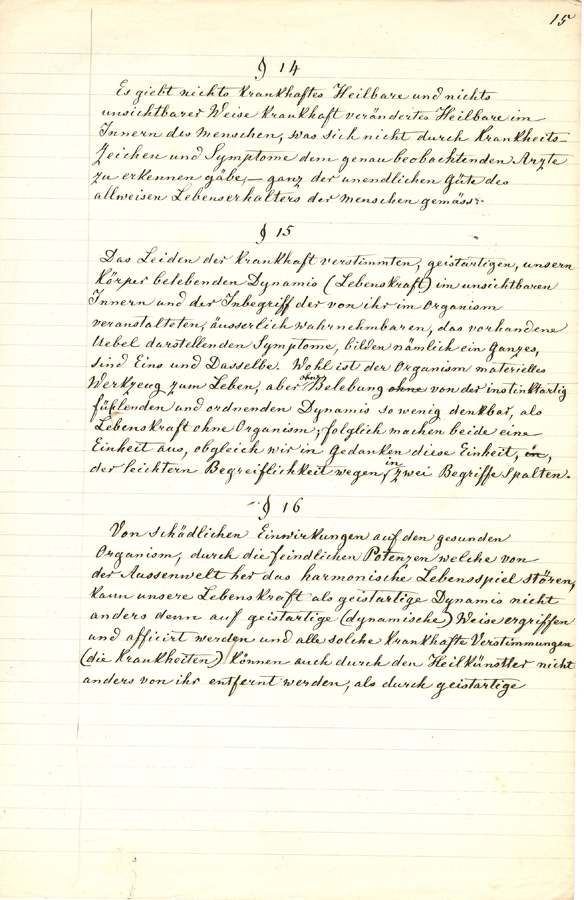 15
§ 14
Es giebt nichts krankhaftes Heilbare und nichts
unsichtbarer Weise krankhaft verändertes Heilbare im
Innern des Menschen, was sich nicht durch Krankheits-
Zeichen und Symptome dem genau beobachtenden Arzte
zu erkennen gäbe, — ganz der unendlichen Güte des
allweisen Lebenserhalters der Menschen gemäss.
§ 15
Das Leiden der krankhaft verstimmten, geistartigen, unsern
Körper belebenden Dynamis (Lebenskraft) im unsichtbaren
Innern und der Inbegriff der von ihr im Organism
veranstalteten, äusserlich wahrnehmbaren, das vorhandene
Uebel darstellenden Symptome, bilden nämlich ein Ganzes,
sind Eins und Dasselbe. Wohl ist der Organism materielles
Werkzeug zum Leben, aber ohne Belebung ohne von der instinktartig
fühlenden und ordnenden Dynamis so wenig denkbar, als
Lebenskraft ohne Organism; folglich machen beide eine
Einheit aus, obgleich wir in Gedanken diese Einheit, in,
der leichtern Begreiflichkeit wegen, in zwei Begriffe spalten.
§ 16
Von schädlichen Einwirkungen auf den gesunden
Organism, durch die feindlichen Potenzen welche von
der Aussenwelt her das harmonische Lebensspiel stören,
kann unsere Lebenskraft als geistartige Dynamis nicht
anders denn auf geistartige (dynamische) Weise ergriffen
und afficirt werden und alle solche krankhafte Verstimmungen
(die Krankheiten) können auch durch den Heilkünstler nicht
anders von ihr entfernt werden, als durch geistartige